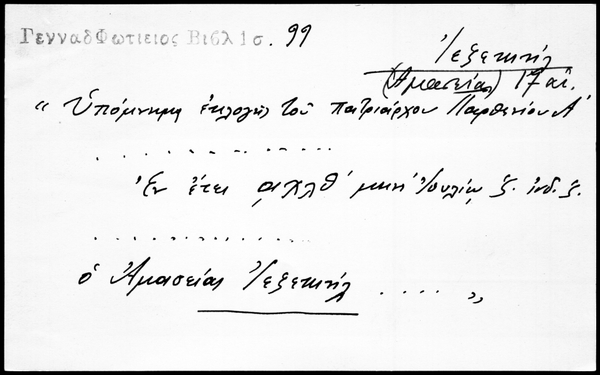 ΓενναδΦωτιειος Βιβλ ισ. 99
Ἰεζεκιήλ
(Ἀμασείας) 17 αἰ.
"Ὑπόμνημα ἐκλογῆς τοῦ πατριάρχου Παρθενίου Α΄
. . . . . . . . . . . . . .
ἐν ἔτει ͵αχλθ΄ μηνὶ Ἰουλίῳ ζ. ἰνδ. ζ.
. . . . . . . . . . . . . .
ὁ Ἀμασείας Ἰεζεκιήλ . . . . "